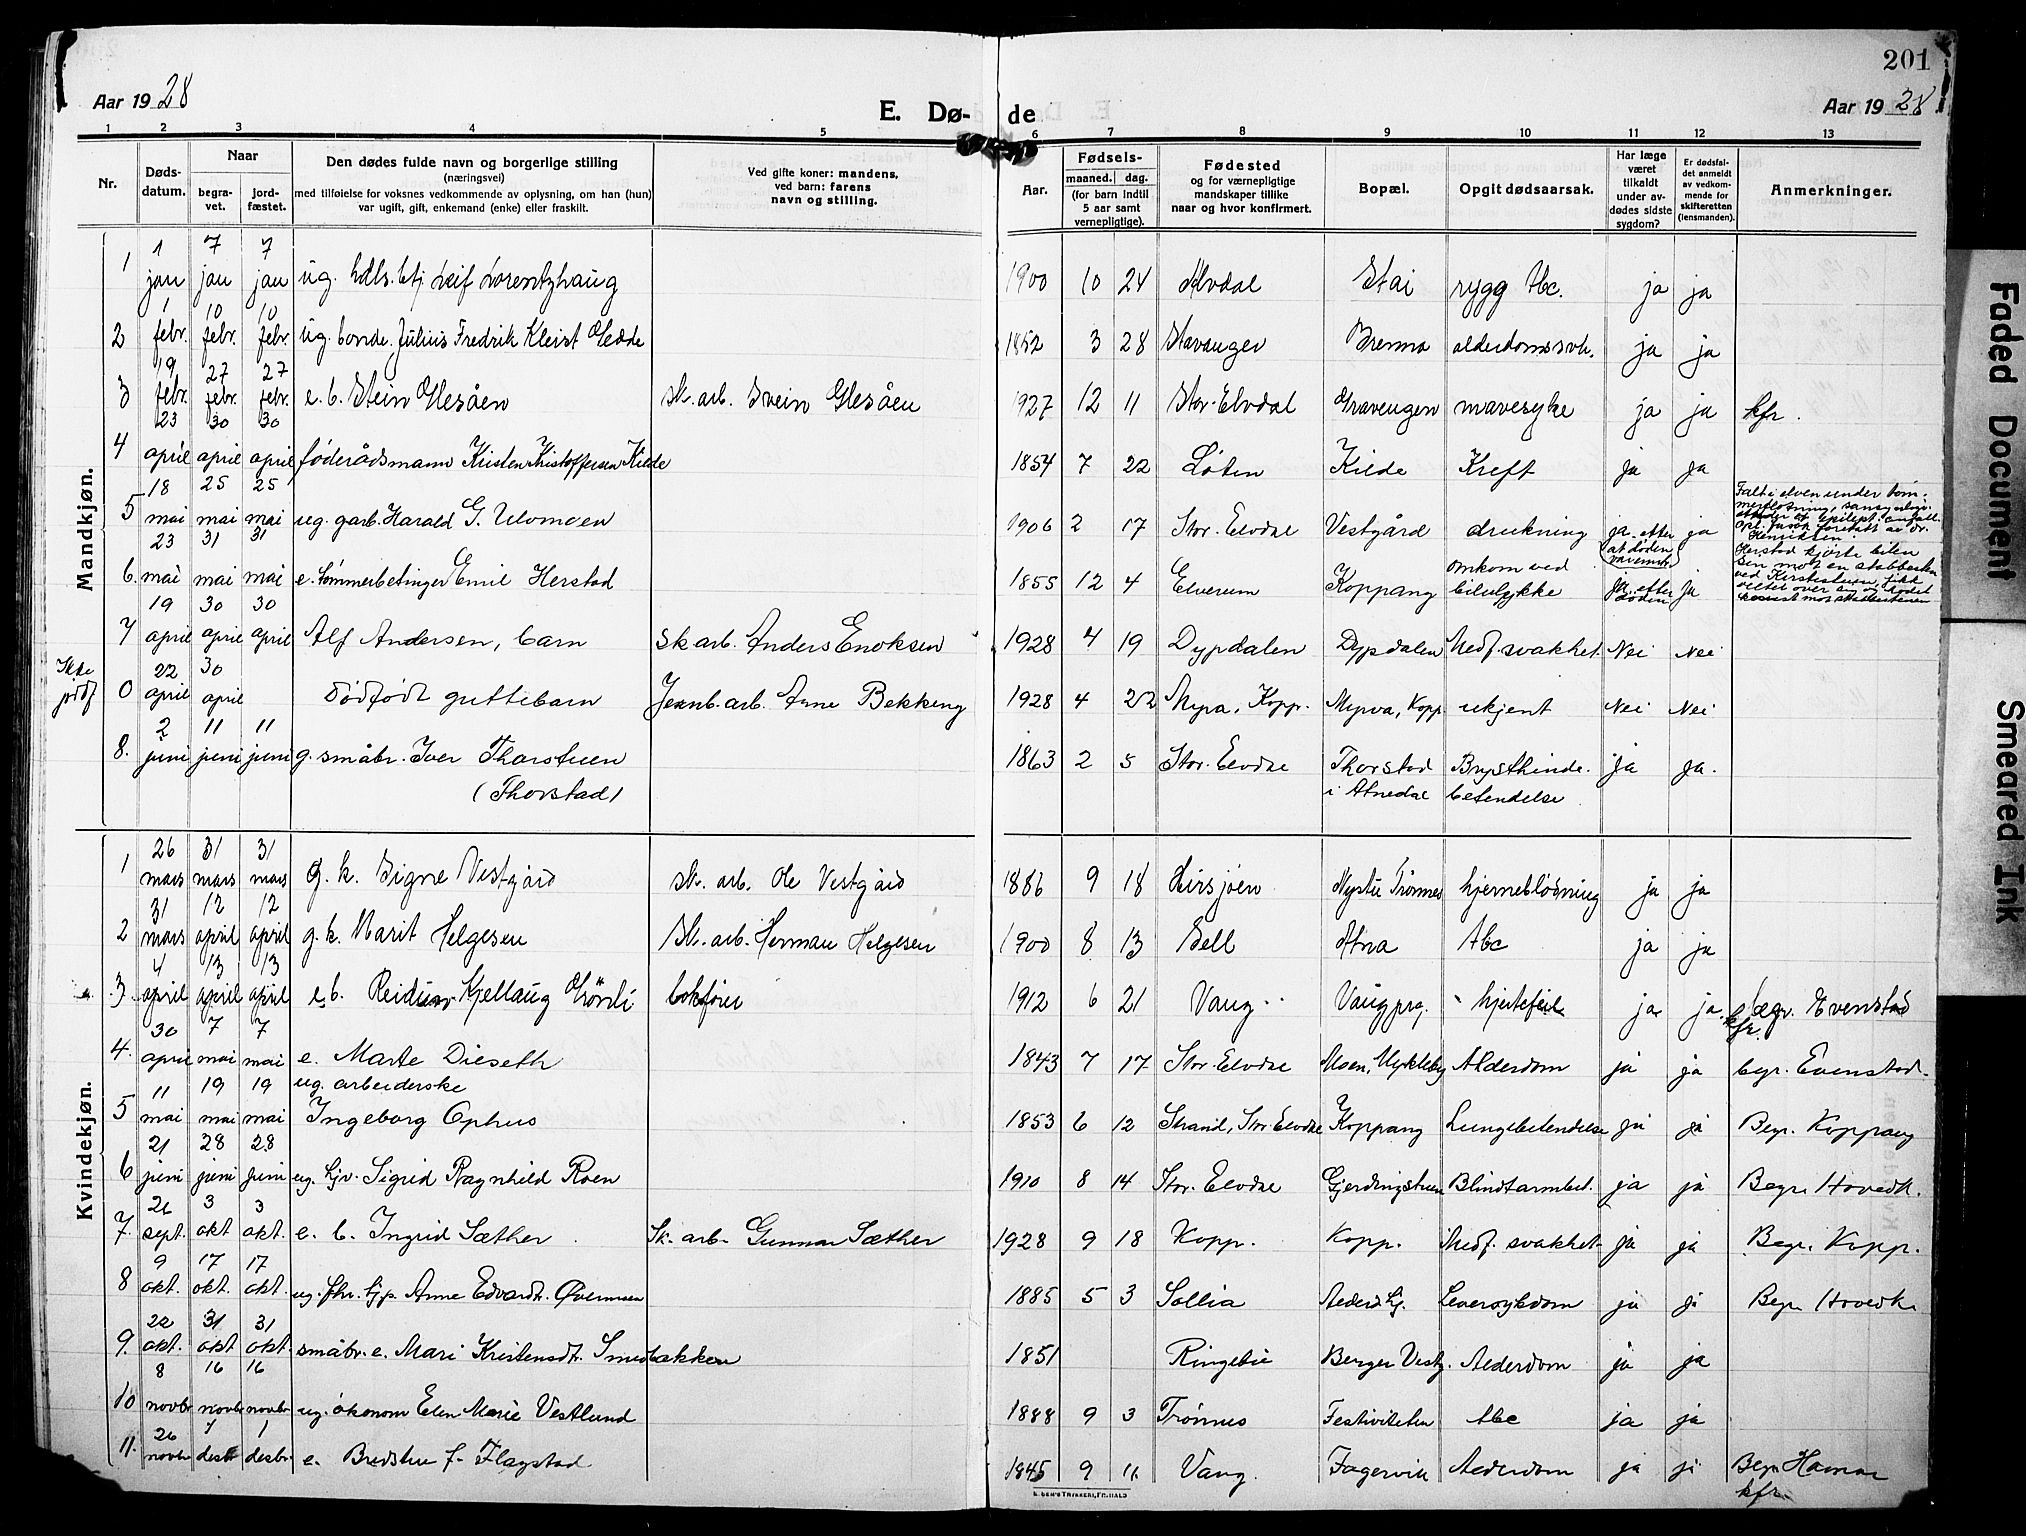 201
Aar 1928
E. Dø-
de
Aar 1928
1 2 3 4 5 6 7 8 9 10 11 12 13
Nr.
Døds-
datum.
Naar
begra-
vet.
jord-
fæstet.
Den dødes fulde navn og borgerlige stilling
(næringsvei)
med tilføielse for voksnes vedkommende av oplysning, om han (hun)
var ugift, gift, enkemand (enke) eller fraskilt.
Ved gifte koner: mandens,
ved barn: farens
navn og stilling.
Aar.
Fødsels-
maaned. dag.
(for barn indtil
5 aar samt
vernepligtige).
Fødested
og for værnepligtige
mandskaper tillike
naar og hvor konfirmert.
Bopæl.
Opgit dødsaarsak.
Har læge
været
tilkaldt
under av-
dødes sidste
sygdom?
Er dødsfal-
det anmeldt
av vedkom-
mende for
skifteretten
(lensmanden).
Anmerkninger.
Mandkjøn.
1 1 jan 7 jan 7 jan ug. hdls.btj Leif Lorentzhaug 1900 10 24 Alvdal Stai rygg tbc. ja ja
2 1 febr. 10 febr. 10 febr. ug. bonde. Julius Fredrik Kleist Gedde 1852 3 28 Stavanger Brenna alderdomssvk. ja ja
3 19 febr. 27 febr. 27 febr. e. b. Stein Glesåen Sk. arb. Svein Glesåen 1927 12 11 Stor-Elvdal Gravengen mavesyke ja ja kfr.
4 23 april 30 april 30 april føderådsmann Kristen Kristoffersen Kilde 1854 7 22 Løten Kilde Kreft ja ja
5 18 mai 25 mai 25 mai ug. garb. Harald G. Ulvmoen 1906 2 17 Stor-Elvdal Vestgård drukning ja. etter at døden ja
Falt i elven under tøm-
merfløtning,
Henriksen.
6. 23 mai 31 mai 31 mai e. tømmerbetinger Emil Herstad 1855 12 4 Elverum Koppang omkom ved
bilulykke ja. etter
døden ja
Herstad kjørte bilen
sin mot en stabbesten
7 19 april 30 april 30 april Alf Andersen, barn sk arb. Anders Enoksen 1928 4 19 Dypdalen Dypdalen Medf. svakhet Nei Nei
Ikke
jrdf 0 22 april 30 april dødfødt guttebarn Jernb. arb. Arne Bekkeng 1928 4 22 Myra, Kopp. Myra, Kopp. ukjent Nei Nei
8. 2 juni 11 juni 11 juni g. småbr. Iver Thorstuen 1863 2 5 Stor-Elvdal Thorstad Brysthinde- ja ja.
(Thorstad) i Atnedal betendelse
Kvindekjøn.
1 26 mars 31 mars 31 mars g. k. Signe Vestgård sk. arb. Ole Vestgård 1886 9 18 Hirsjøen Nystu Trønnes hjerneblødning ja ja
2 31 mars 12 april 12 april g. k. Marit Helgesen Sk. arb. Herman Helgesen 1900 8 13 Sell Atna tbc ja ja
3. 4 april 13 april 13 april e.b. Reidun Kjellaug bokfører 1912 6 21 Vang Vang prg. hjertefeil ja ja. begr. Evenstad
kfr.
4. 30 april 7 mai 7 mai e. Marte Dieseth 1843 7 17 Stor-Elvdal Moen, Mykleby Alderdom ja ja begr. Evenstad.
5 11 mai 19 mai 19 mai ug. arbeiderske
Ingeborg Ophus 1853 6 12 Strand, Stor Elvdal Koppang Lungebetendelse ja ja Begr. Koppang
6 21 juni 28 juni 28 juni ug. hjv. Sigrid Ragnhild Roen 1910 8 14 Stor. Elvdal Gjerdingstuen Blindtarmbet. ja ja Begr. Hovedk.
7. 26 sept. 3 okt 3 okt. e. b. Ingrid Sæther Sk. arb. Gunnar Sæther 1928 9 18 Kopp. Kopp. Medf. svakhet ja ja Begr. Kopp.
8 9 okt. 17 okt. 17 okt. ug. Anne Edvardt. Øvermoen 1885 5 3 Sollia Leversykdom ja ja Begr. Hovedk.
9. 22 okt. 31 okt 31 okt. småbr. e. Mari Kristensdt. Smedbakken 1851 Ringebu Berger Vestg. Alderdom ja ja
10 8 novbr 16 novbr 16 novbr ug. økonom Elen Marie Vestlund 1888 9 3 Trønnes Festiviteten tbc ja ja
11. 26 novbr 1 desbr 1 desbr. e. Bredstu f. Flagstad 1845 9 11 Vang. Fagervik Alderdom ja ja Begr. Hamar
kfr.
Faded Document
Smeared Ink